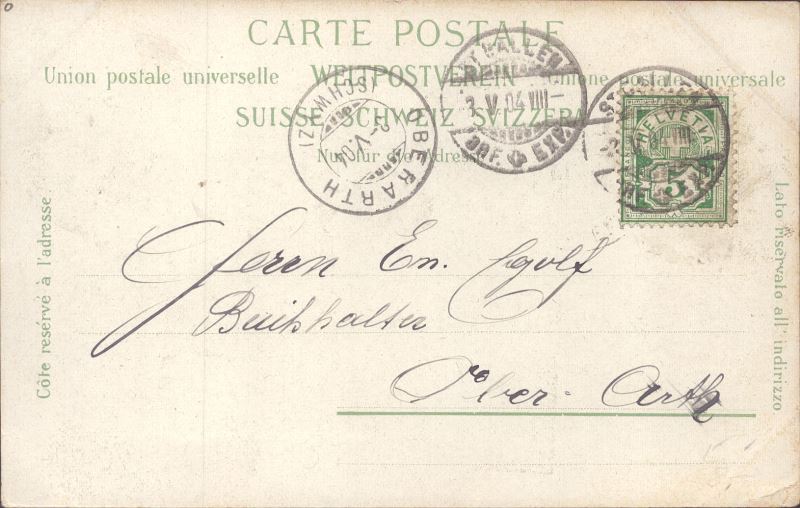 CARTE POSTALE
Union postale universelle WELTPOSTVEREIN Unione postale universale
SUISSE SCHWEIZ SVIZZERA
Nur für die Adresse
Côte resérvé à l'adresse
Lato riservato all' indirizzo
OBERARTH (SCHWYZ)
3.V.04
ST. GALLEN
3.V.04 VIII
BRF. EXP.
HELVETIA
5
Herrn En.
Buchhalter
Ober-Arth